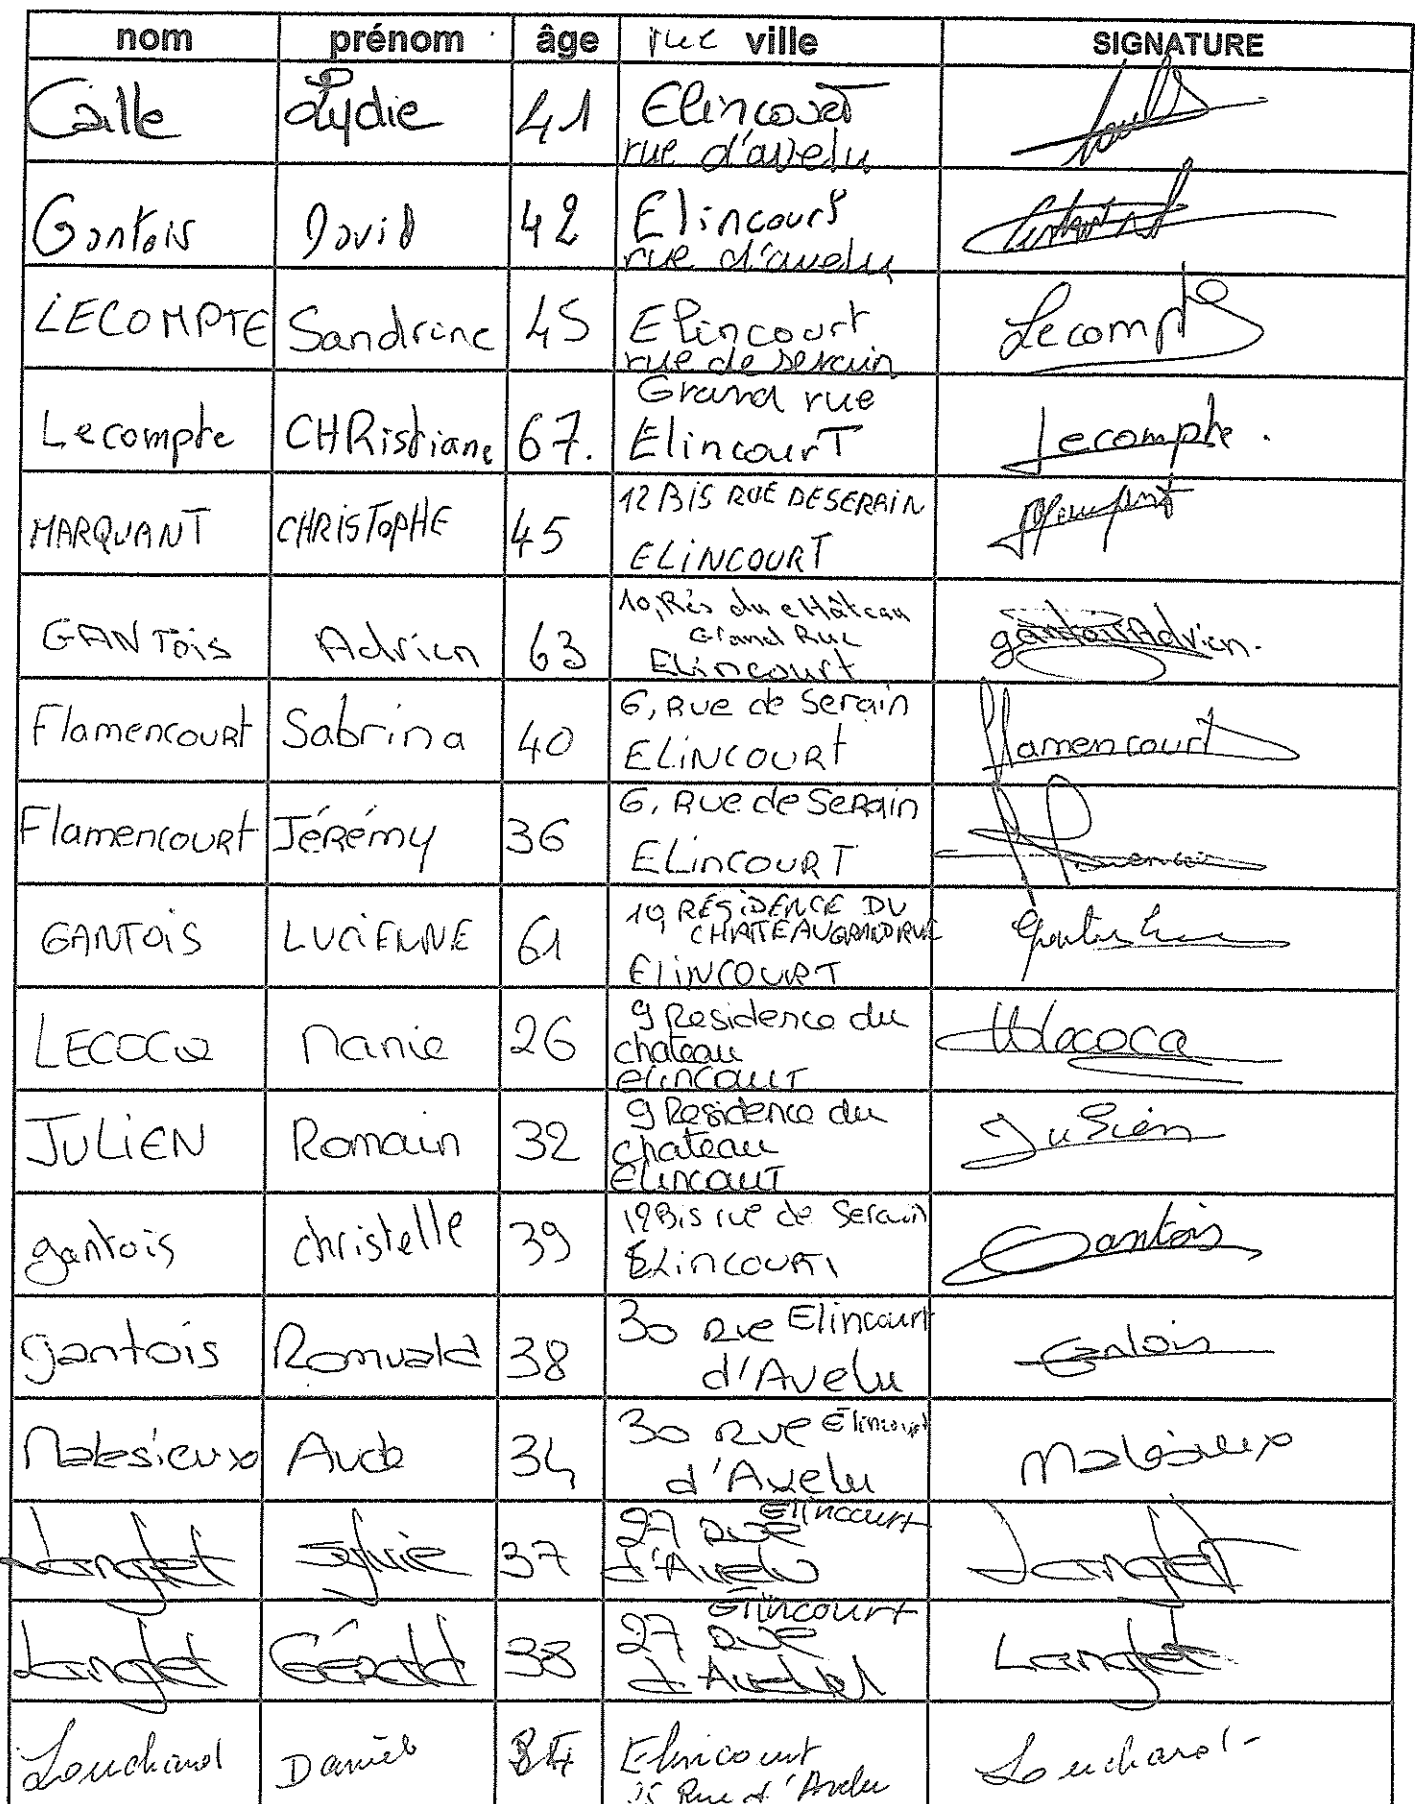 nom prénom âge rue ville SIGNATURE
Caille Lydie 41 Elincourt
rue d'avelu
Gantois David 42 Elincourt
rue d'avelu
LECOMPTE Sandrine 45 Elincourt Lecompte
rue de serain
Lecompte CHRistiane 67. Grand rue
ElincourT Lecompte.
MARQUANT CHRISTOPHE 45 12 BIS RUE DE SERAIN
ELINCOURT
GANTois Adrien 63 10, Rés du cHâteau
Grand Rue
Elincourt gantois Adrien.
Flamencourt Sabrina 40 6, Rue de Serain
ELINCOURt flamencourt
Flamencourt Jérémy 36 6, Rue de Serain
ELinCOURT
GANTOIS LUCIENNE 61 10, RESIDENCE DU
CHATEAU GRAND RUE
ELINCOURT
LECOCQ 26 9 Residence du
chateau
elincourt
JULIEN Romain 32 9 Residence du
chateau
Elincourt Julien
gantois christelle 39 12 Bis rue de Serain
ELINCOURT Gantois
gantois Romuald 38 30 Rue Elincourt
d'Avelu Gantois
Malesieux Aude 34 30 Rue Elincourt
d'Avelu Malesieux
Langlet Sylvie 37 27 Rue Elincourt
d'Avelu Langlet
Langlet Gérald 38 27 Rue Elincourt
d'Avelu Langlet
Louchard Daniel Elincourt Louchard
Rue d'Avelu